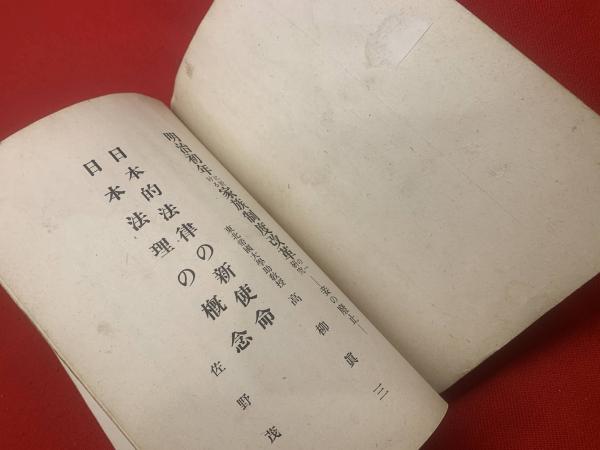 明治初年に於ける家族制度改革の一研究―妾の廃止―
東北帝國大學助教授 高柳眞三
日本的法律の新使命
日本法理の概念
佐野茂